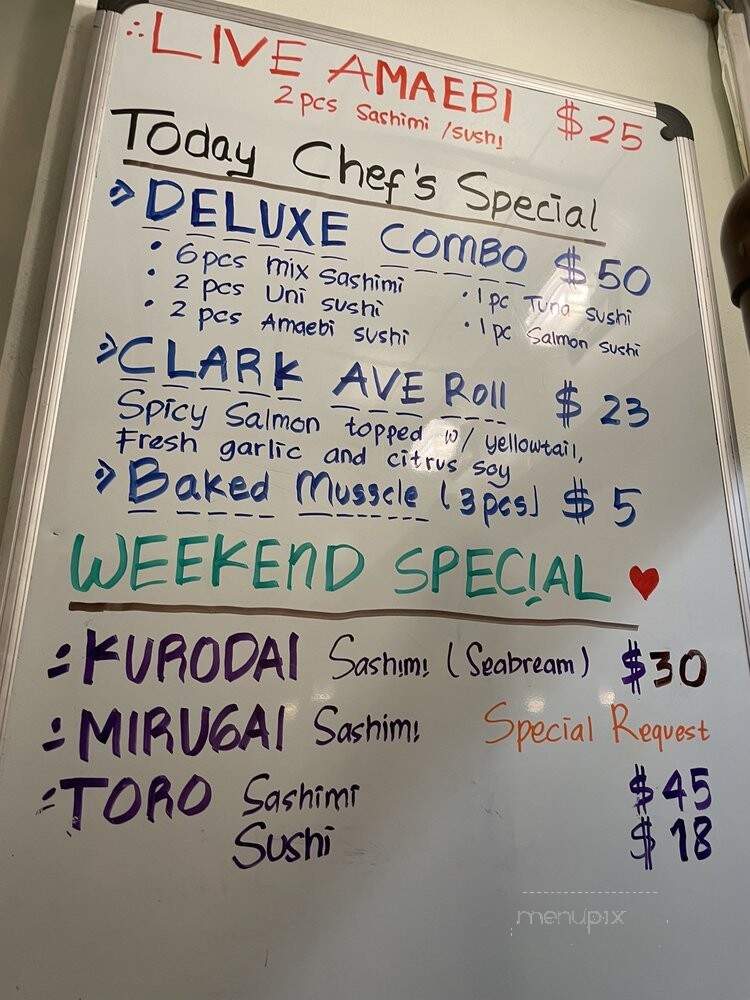 LIVE AMAEBI $25
2 pcs Sashimi / sushi
Today Chef's Special
DELUXE COMBO $50
• 6 pcs mix sashimi
• 2 pcs Uni sushi • 1 pc Tuna sushi
• 2 pcs Amaebi sushi • 1 pc Salmon sushi
CLARK AVE Roll $23
Spicy Salmon topped w/ yellowtail,
Fresh garlic and citrus soy
Baked Musscle (3 pcs) $5
WEEKEND SPECIAL ♥
KURODAI Sashimi (Seabream) $30
MIRUGAI Sashimi Special Request
TORO Sashimi $45
Sushi $18
menupix